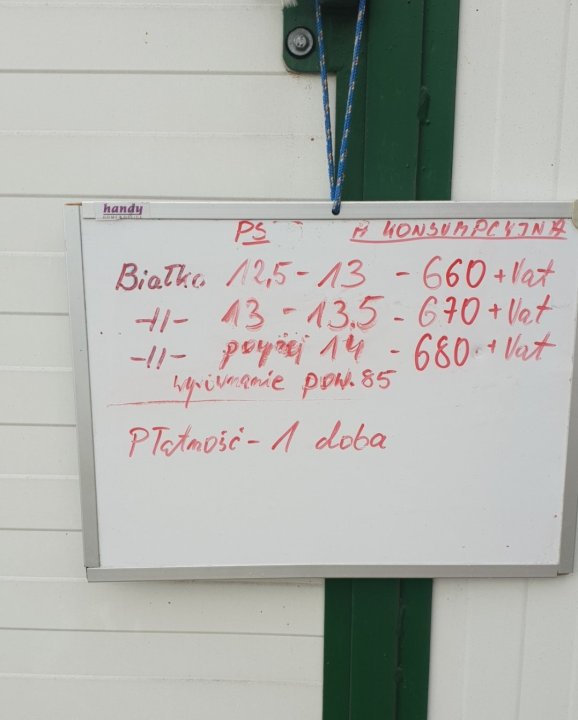 handy
PS A KONSUMPCYJNA
Białko 12,5 - 13 - 660 + Vat
-11- 13 - 13.5 - 670 + Vat
-11- powyżej 14 - 680 + Vat
wyrównanie pow. 85
Płatność - 1 doba